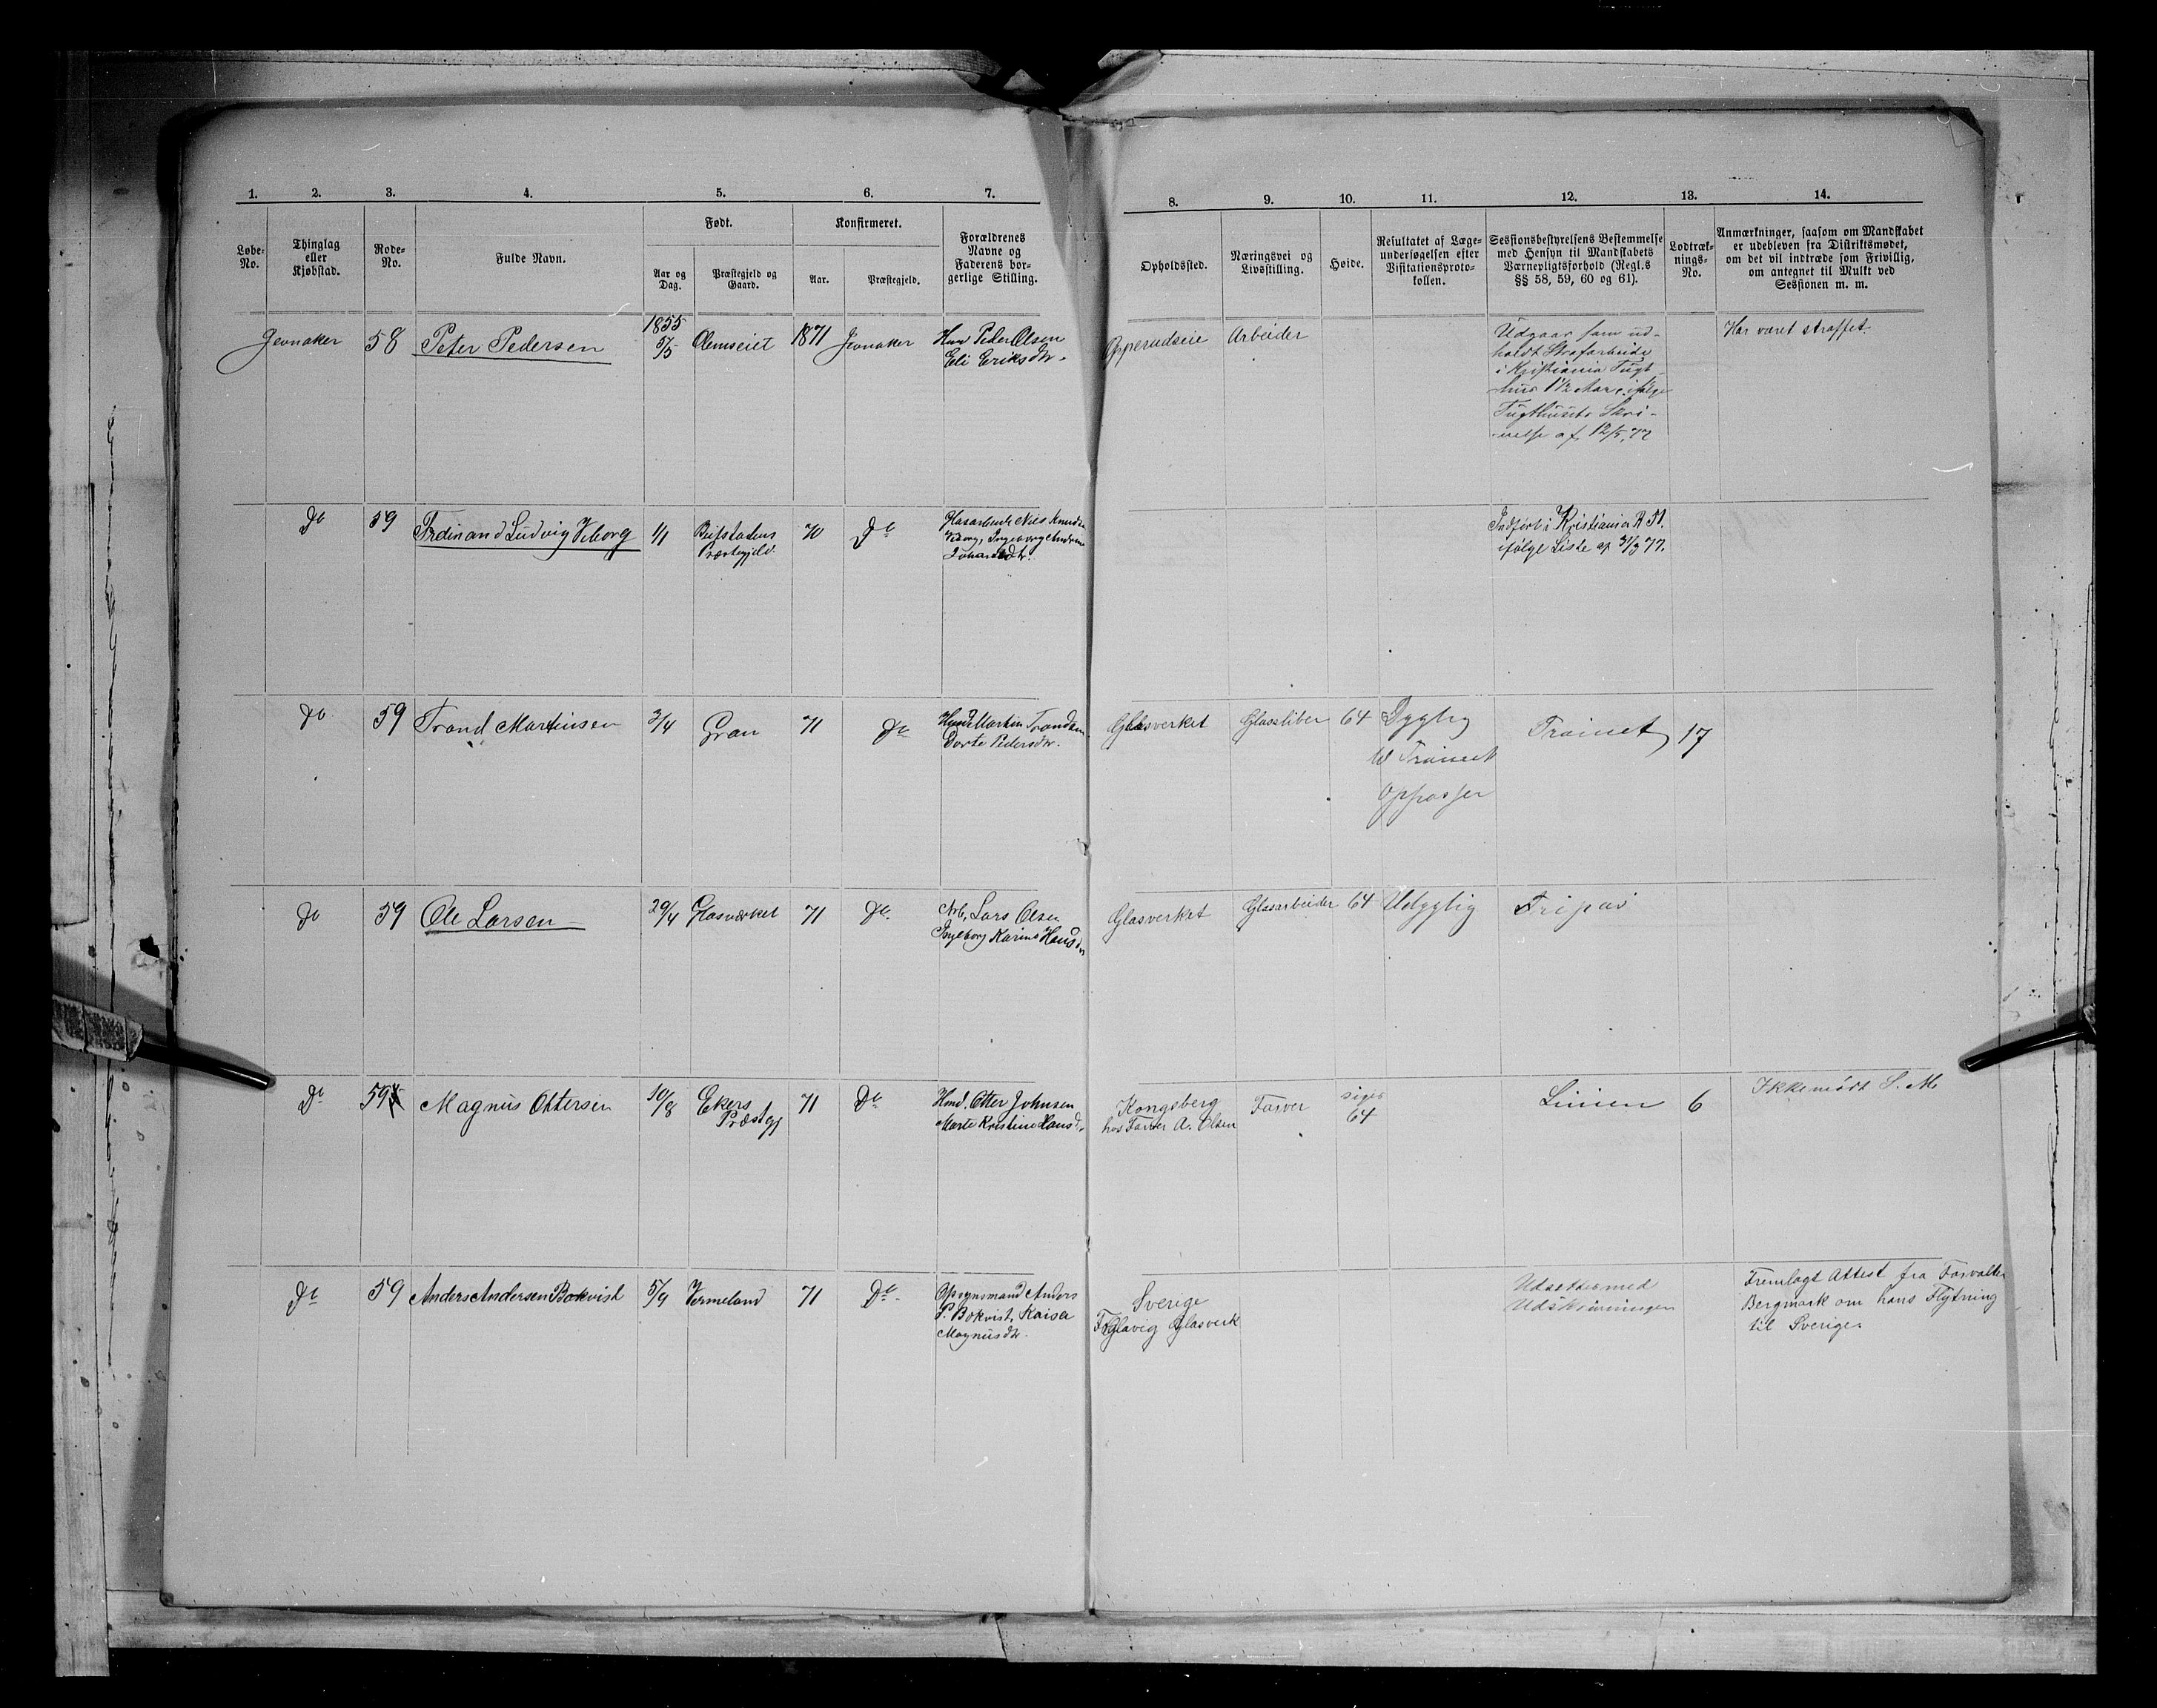 1. 2. 3. 4. 5. 6. 7. 8. 9. 10. 11. 12. 13. 14.
Løbe-
No.
Thinglag
eller
Kjøbstad.
Rode-
No.
Fulde Navn.
Født.
Aar og
Dag.
Præstegjeld og
Gaard.
Konfirmeret.
Aar.
Præstegjeld.
Forældrenes
Navne og
Faderens bor-
gerlige Stilling.
Opholdssted.
Næringsvei og
Livsstilling.
Høide.
Resultatet af Læge-
undersøgelsen efter
Visitationsproto-
kollen.
Sessionsbestyrelsens Bestemmelse
med Hensyn til Mandskabets
Værnepligtsforhold (Regl.s
§§ 58, 59, 60 og 61).
Lodtræk-
nings-
No.
Anmærkninger, saasom om Mandskabet
er udebleven fra Distriktsmødet,
om det vil indtræde som Frivillig,
om antegnet til Mulkt ved
Sessionen m. m.
Jevnaker
58
Peter Pedersen
1855
5/5
Olemseiet
1871
Jevnaker
Peder Olsen
Eli Eriksdtr.
Opperudseie
Arbeider
Udgaar som ud-
holdt Strafarbeide
i Kristiania Tugt-
hus 1½ Aar, ifølge
Tugthusets Skri-
velse af 12/5,77
Har været straffet.
Do
59
Ferdinand Ludvig Viborg
1/1
Præstegjeld
70
Do
Glasarbeider Nils Knudsen
Viborg, Ingeborg
Indført i Kristiania R 51.
ifølge Liste af 31/3 77.
Do
59
Trond Martinsen
3/4
Gran
71
Do
Martin Trondsen
Dorte Pedersdtr.
Glasverket
Glassliber
64
Dygtig
til Trainet
Oppasser
Trainet
17
Do
59
Ole Larsen
29/4
Glasværket
71
Do
Arb. Lars Olsen
Ingeborg Karine Hansd.
Glasverket
Glasarbeider
64
Udygtig
Fripas
Do
59
Magnus Ottersen
10/8
Ekers
Præstgj
71
Do
Hmd. Otter Johnsen
Marte Kristine Hansd.
Kongsberg
hos Farver A. Olsen
Farver
siges
64
Linien
6
Ikkemødt S. M.
Do
59
Anders Andersen Bokvist
5/9
Vermeland
71
Do
Opsynsmand Anders
P. Bokvist, Kaisa
Magnusdtr.
Sverige
Glavig Glasverk
Udsættes med
Udskrivningen
Fremlagt Attest fra Forvalter
Bergmark om hans Flytning
til Sverige.